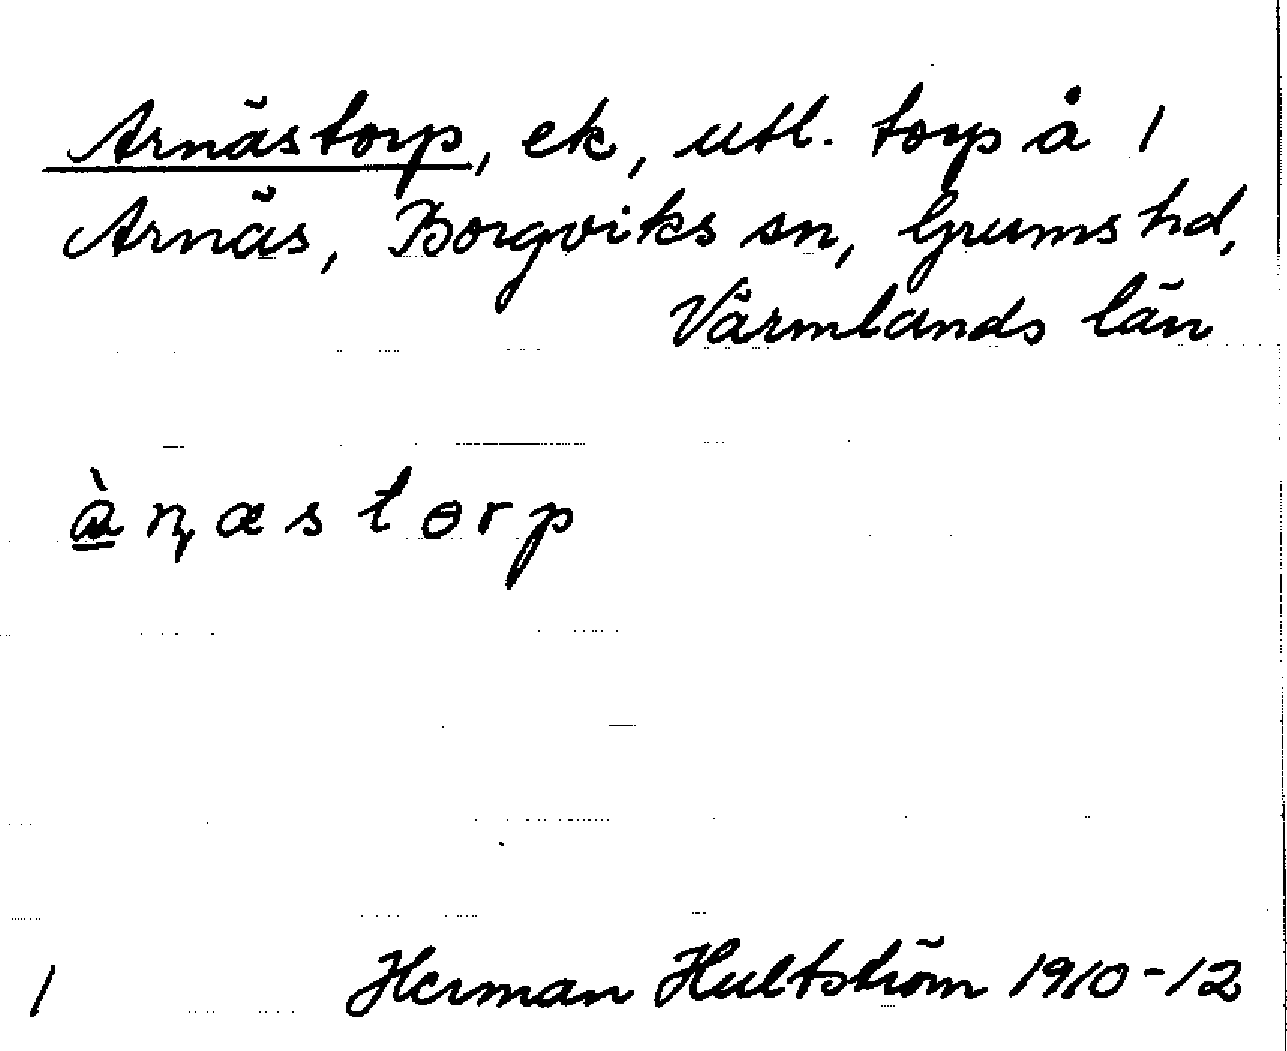 Arnästorp, ek, utl. torp å 1
Arnäs, Borgviks sn, Grums hd,
Värmlands län
à̱ɳæstɵrp
1 Herman Hultström 1910-12